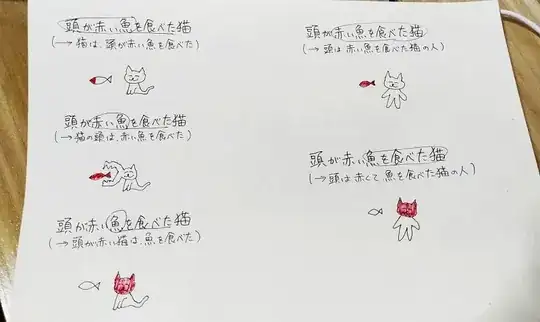 頭が赤い魚を食べた猫
(→ 猫は、頭が赤い魚を食べた)
頭が赤い魚を食べた猫
(→ 猫の頭は、赤い魚を食べた)
頭が赤い魚を食べた猫
(→ 頭が赤い猫は、魚を食べた)
頭が赤い魚を食べた猫
(→ 頭は赤い魚を食べた猫の人)
頭が赤い魚を食べた猫
(→ 頭は赤くて魚を食べた猫の人)